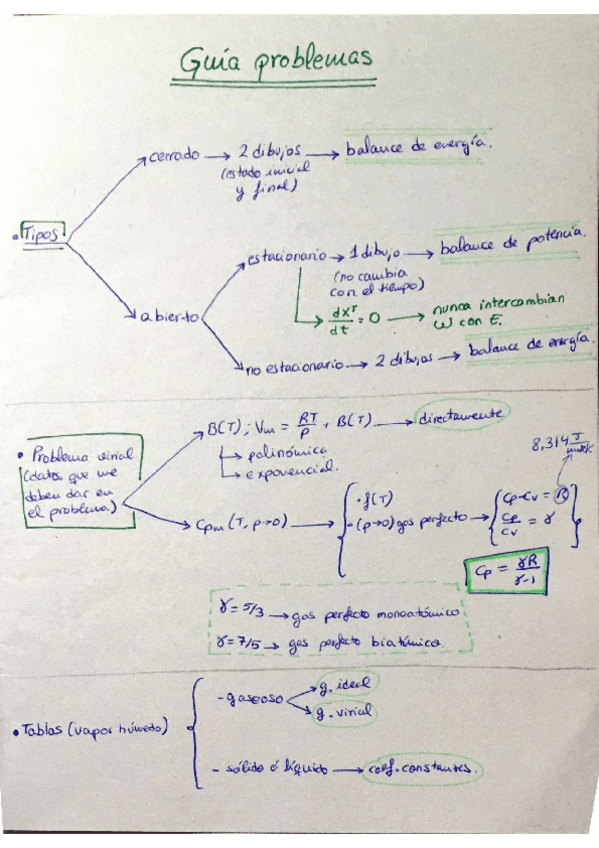 Guía problemas
• Tipos
cerrado → 2 dibujos → balance de energía.
(estado inicial
y final)
abierto
estacionario → 1 dibujo → balance de potencia.
(no cambia
con el tiempo)
dXᵀ/dt = 0 → nunca intercambian
W con E.
no estacionario → 2 dibujos → balance de energía.
• Problema virial
(datos que me
deben dar en
el problema)
B(T); Vm = RT/P + B(T) → directamente
→ polinómica
→ exponencial.
Cpm (T, p→0)
· f(T)
· (p→0) gas perfecto → Cp-Cv = R
Cp/Cv = γ
8,314 J/molK
Cp = γR/γ-1
γ = 5/3 → gas perfecto monoatómico
γ = 7/5 → gas perfecto biatómico.
• Tablas (vapor húmedo)
- gaseoso
g. ideal
g. virial
- sólido ó líquido → coef. constantes.